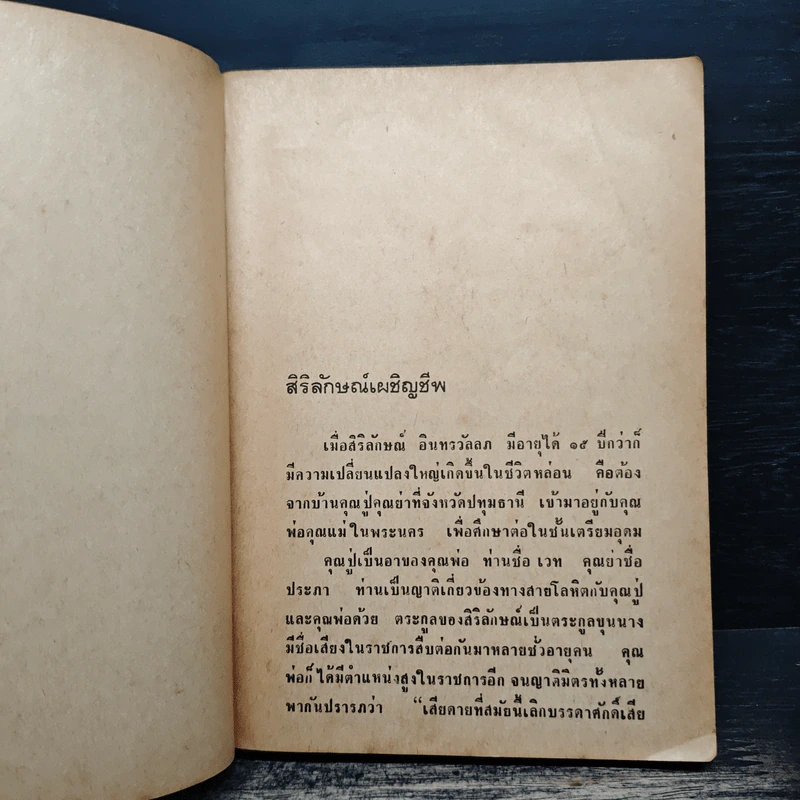 สิริลักษณ์เผชิญชีพ
เมื่อสิริลักษณ์ อินทรวัลลภ มีอายุได้ ๑๕ ปีกว่าก็
มีความเปลี่ยนแปลงใหญ่เกิดขึ้นในชีวิตหล่อน คือต้อง
จากบ้านคุณปู่คุณย่าที่จังหวัดปทุมธานี เข้ามาอยู่กับคุณ
พ่อคุณแม่ในพระนคร เพื่อศึกษาต่อในชั้นเตรียมอุดม
คุณปู่เป็นอาของคุณพ่อ ท่านชื่อ เวท คุณย่าชื่อ
ประภา ท่านเป็นญาติเกี่ยวข้องทางสายโลหิตกับคุณปู่
และคุณพ่อด้วย ตระกูลของสิริลักษณ์เป็นตระกูลขุนนาง
มีชื่อเสียงในราชการสืบต่อกันมาหลายชั่วอายุคน คุณ
พ่อก็ได้มีตำแหน่งสูงในราชการอีก จนญาติมิตรทั้งหลาย
พากันปรารภว่า “เสียดายที่สมัยนี้เลิกบรรดาศักดิ์เสีย